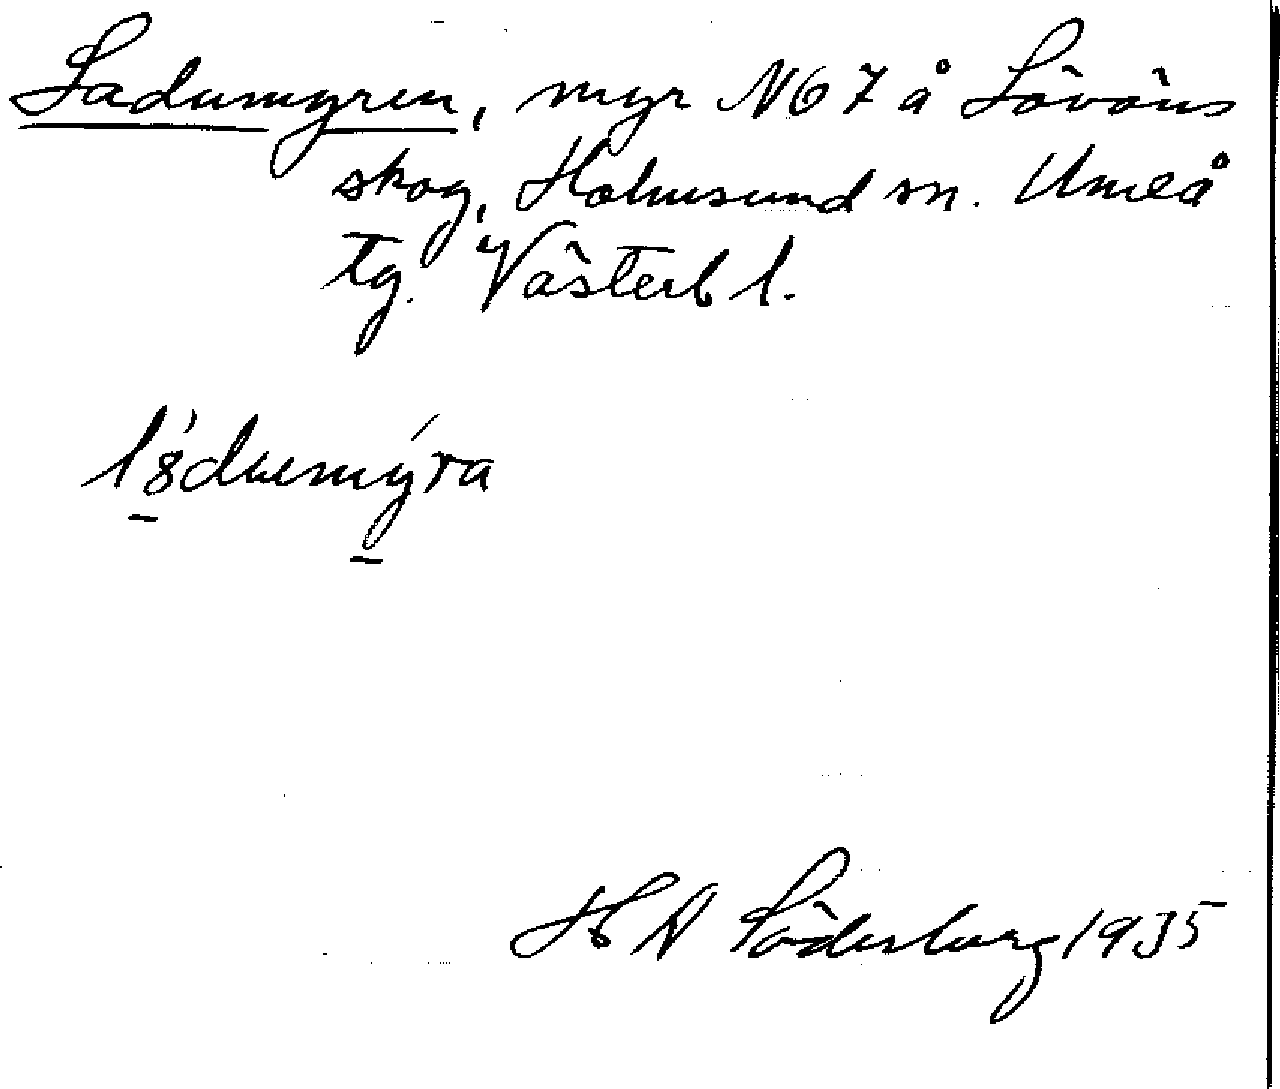 Ladumyren, myr N67 å Lövöns
skog, Holmsund sn. Umeå
tg. Västerb l.
l8̍duemýra
H D Söderberg 1935